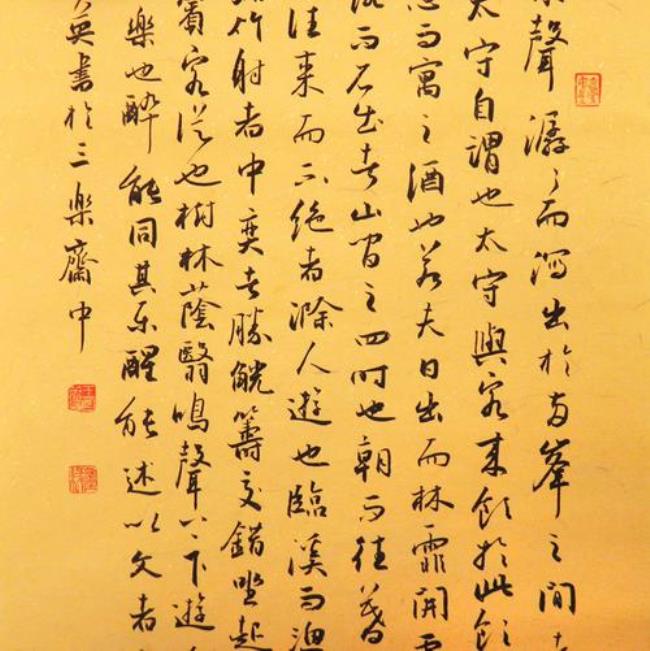 聲潺〻而瀉出於兩峯之間
太守自謂也太守與客來飲於此飲
而寓之酒也若夫日出而林霏開雲
而石出者山間之四時也朝而往暮
往來而不絕者滁人遊也臨溪而漁
竹射者中奕者勝觥籌交錯坐起
賓客從也樹林蔭翳鳴聲上下遊
樂也醉能同其樂醒能述以文者
英書於三樂齋中